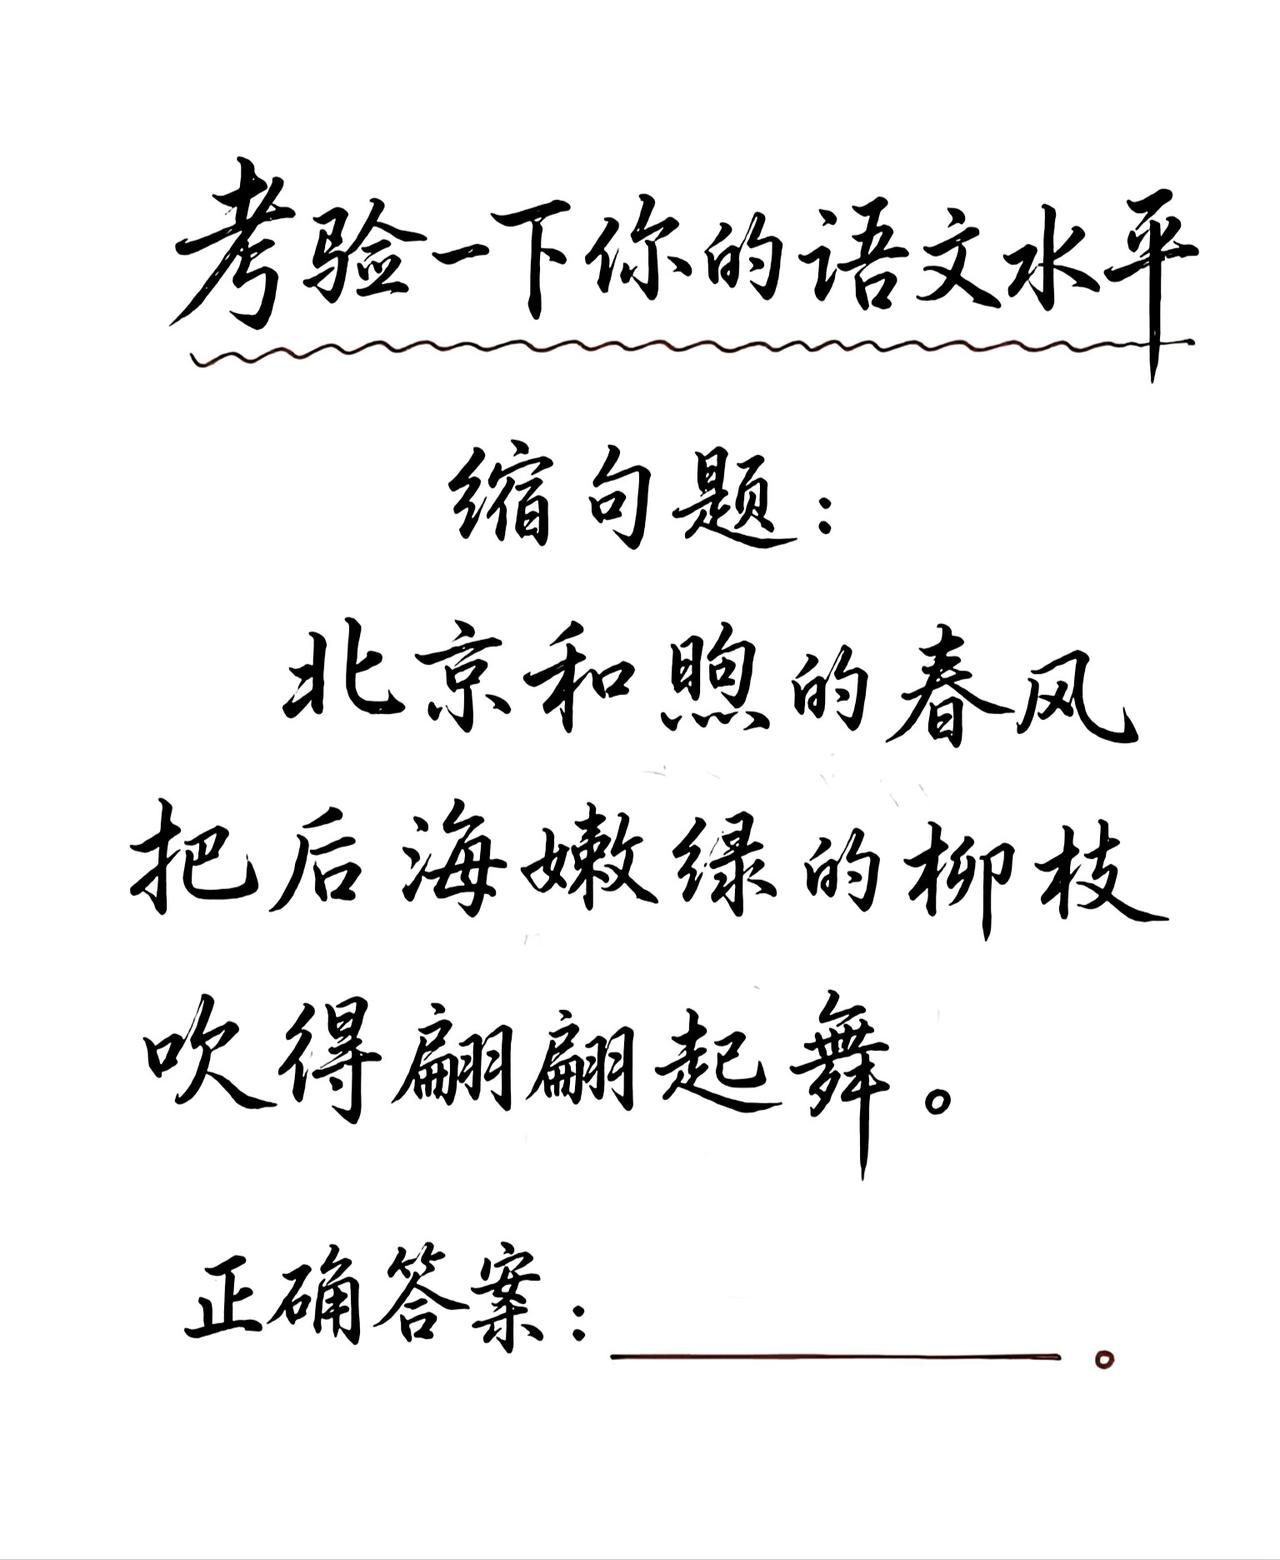 考验一下你的语文水平
缩句题：
北京和煦的春风
把后海嫩绿的柳枝
吹得翩翩起舞。
正确答案：________。